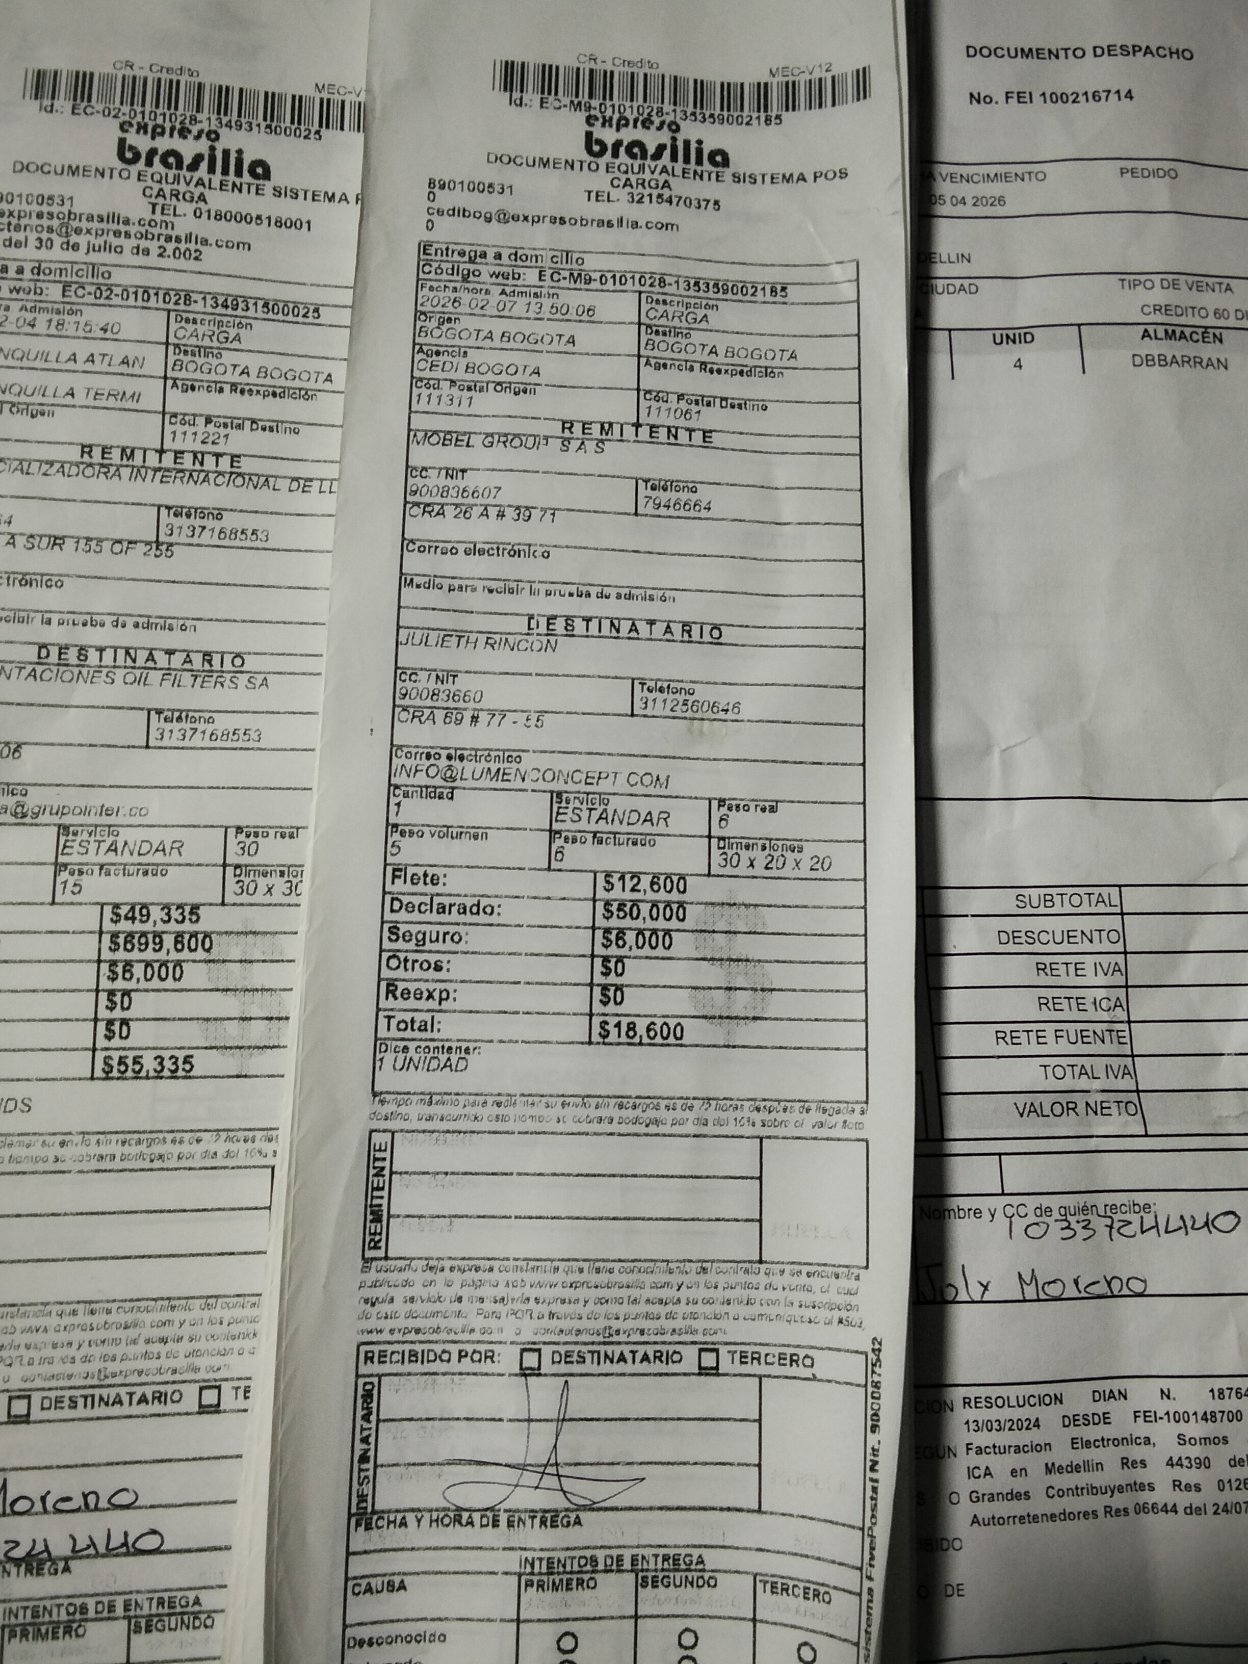 CR - Credito
MEC-V
Id.: EC-02-0101028-134931500025
expreso
brasilia
DOCUMENTO EQUIVALENTE SISTEMA P
90100531
CARGA
TEL. 018000518001
expresobrasilia.com
ctenos@expresobrasilia.com
del 30 de julio de 2.002
a a domicilio
web: EC-02-0101028-134931500025
ra Admisión
Descripción
2-04 18:15:40
CARGA
Destino
NQUILLA ATLAN
BOGOTA BOGOTA
Agencia Reexpedición
NQUILLA TERMI
l Origen
Cód. Postal Destino
111221
REMITENTE
CIALIZADORA INTERNACIONAL DE LL
Teléfono
3137168553
A SUR 155 OF 255
ctrónico
ecibir la prueba de admisión
DESTINATARIO
NTACIONES OIL FILTERS SA
Teléfono
3137168553
06
nico
a@grupointer.co
Servicio
Peso real
ESTANDAR
30
Peso facturado
Dimension
15
30 x 30
$49,335
$699,600
$6,000
$0
$0
$55,335
IDS
DESTINATARIO
TE
Moreno
24 440
NTREGA
INTENTOS DE ENTREGA
PRIMERO
SEGUNDO
CR - Credito
MEC-V12
Id.: EC-M9-0101028-135359002185
expreso
brasilia
DOCUMENTO EQUIVALENTE SISTEMA POS
890100531
CARGA
0
TEL. 3215470375
cedibog@expresobrasilia.com
0
Entrega a domicilio
Código web: EC-M9-0101028-135359002185
Fecha/hora Admisión
Descripción
2026-02-07 13:50:06
CARGA
Origen
Destino
BOGOTA BOGOTA
BOGOTA BOGOTA
Agencia
Agencia Reexpedición
CEDI BOGOTA
Cód. Postal Origen
Cód. Postal Destino
111311
111061
REMITENTE
MOBEL GROUP S A S
CC. / NIT
Teléfono
900836607
7946664
CRA 26 A # 39 71
Correo electrónico
Medio para recibir la prueba de admisión
DESTINATARIO
JULIETH RINCON
CC. / NIT
Teléfono
90083660
3112560646
CRA 69 # 77 - 55
Correo electrónico
INFO@LUMENCONCEPT.COM
Cantidad
Servicio
Peso real
1
ESTANDAR
6
Peso volumen
Peso facturado
Dimensiones
5
6
30 x 20 x 20
Flete:
$12,600
Declarado:
$50,000
Seguro:
$6,000
Otros:
$0
Reexp:
$0
Total:
$18,600
Dice contener:
1 UNIDAD
Tiempo máximo para reclamar su envío sin recargos es de 72 horas después de llegada al
destino, transcurrido este tiempo se cobrara bodegaje por día del 10% sobre el valor flete
REMITENTE
El usuario deja expresa constancia que tiene conocimiento del contrato que se encuentra
publicado en la página web www.expresobrasilia.com y en los puntos de venta, el cual
regula servicio de mensajería expresa y como tal acepta su contenido con la suscripción
de este documento. Para PQR a través de los puntos de atención o comuníquese al #503,
www.expresobrasilia.com o contactenos@expresobrasilia.com
RECIBIDO POR:
DESTINATARIO
TERCERO
DESTINATARIO
FECHA Y HORA DE ENTREGA
INTENTOS DE ENTREGA
CAUSA
PRIMERO
SEGUNDO
TERCERO
Desconocido
sistema FivePostal Nit. 900087542
DOCUMENTO DESPACHO
No. FEI 100216714
A VENCIMIENTO
PEDIDO
05 04 2026
ELLIN
CIUDAD
TIPO DE VENTA
CREDITO 60 DI
UNID
ALMACÉN
4
DBBARRAN
SUBTOTAL
DESCUENTO
RETE IVA
RETE ICA
RETE FUENTE
TOTAL IVA
VALOR NETO
Nombre y CC de quién recibe:
1033724440
Joly Moreno
CION RESOLUCION DIAN N. 18764
13/03/2024 DESDE FEI-100148700
EGUN Facturacion Electronica, Somos
ICA en Medellin Res 44390 del
S O Grandes Contribuyentes Res 0126
Autorretenedores Res 06644 del 24/07
IBIDO
O DE